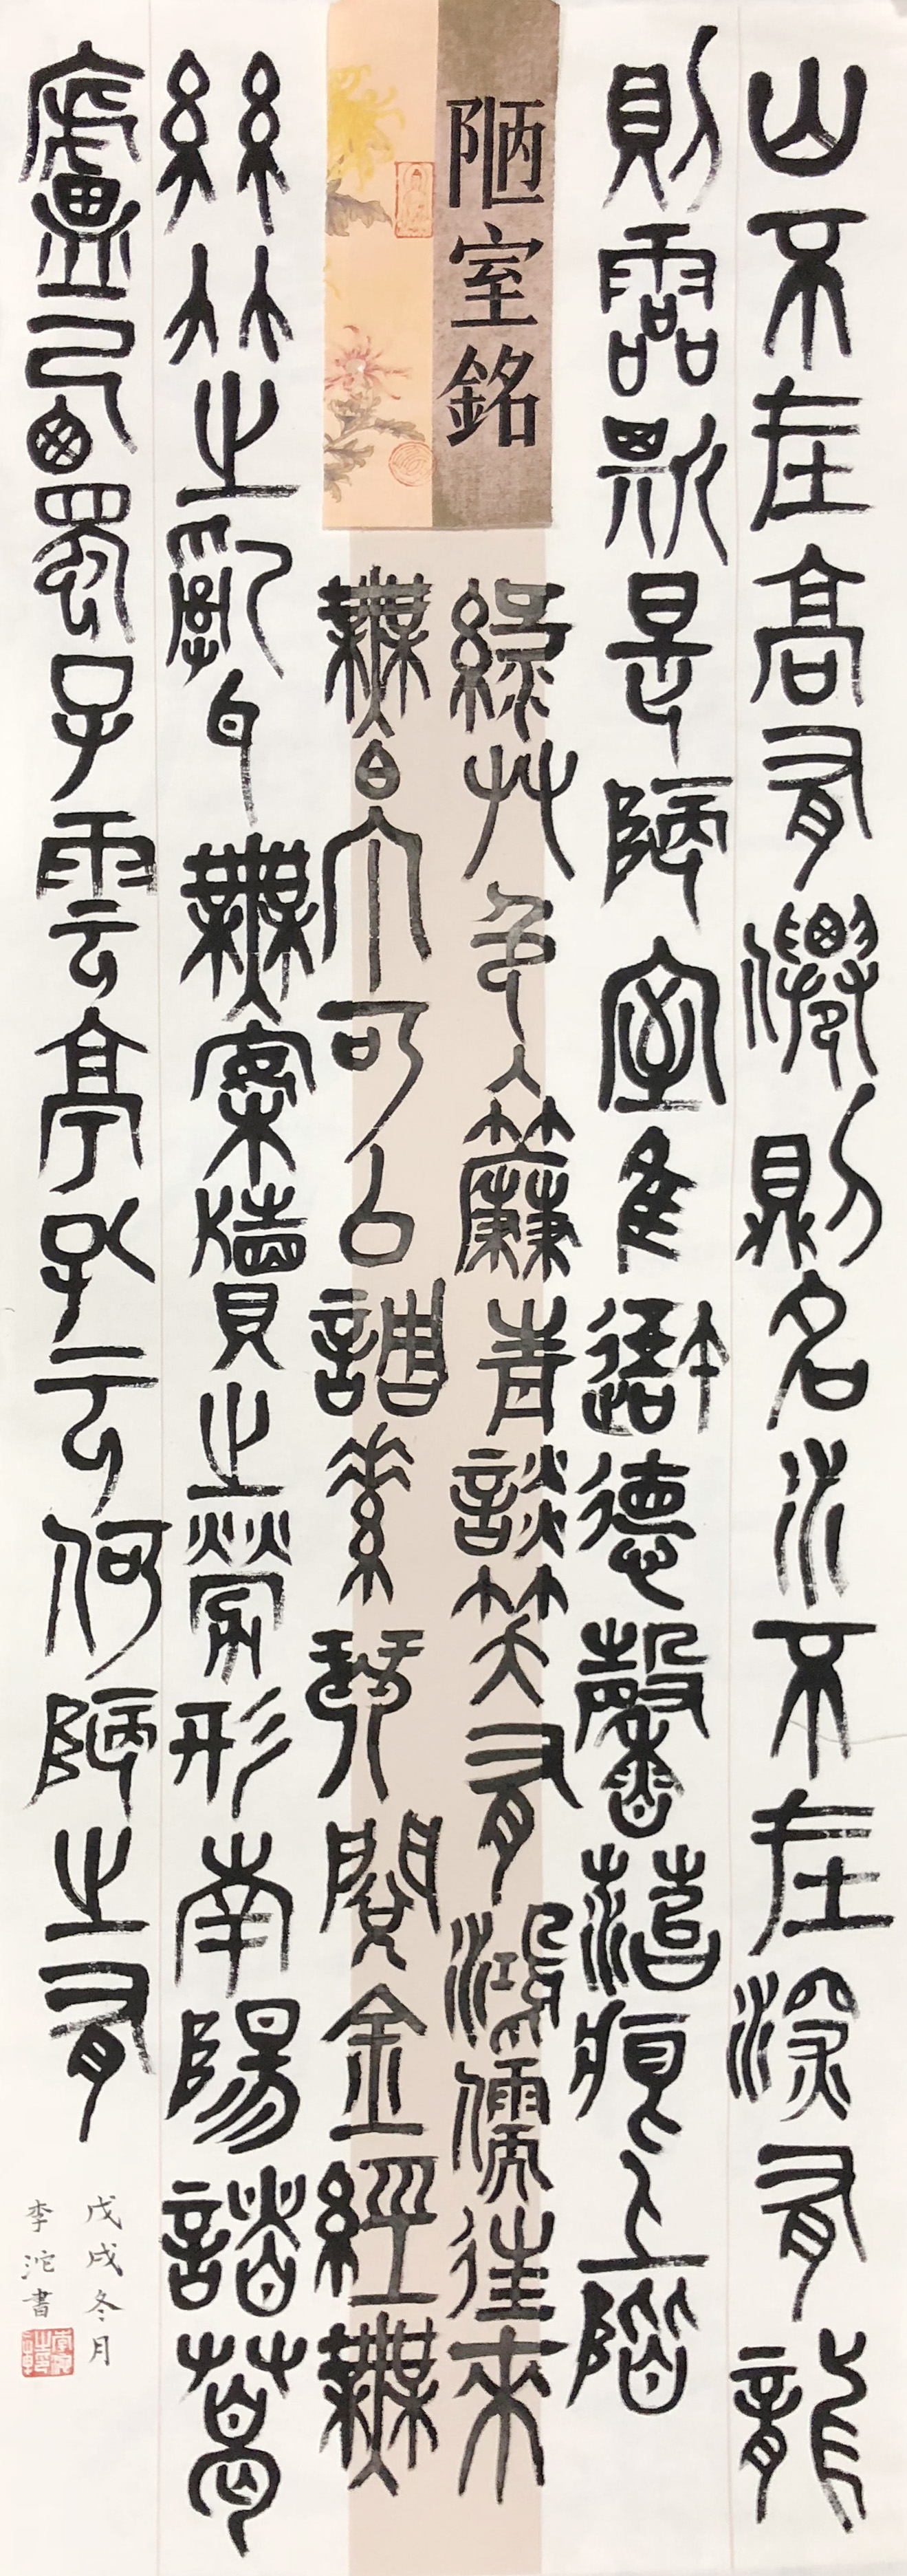 陋室銘
山不在高有僊則名水不在深有龍
則靈斯是陋室隹吾德馨菭痕上階
綠艸色入簾青談笑有鴻儒往來
無白丁可以調素琴閱金經無
絲竹之亂耳無案牘之勞形南陽諸葛
廬西蜀子雲亭孔云何陋之有
戊戌冬月
李沱書